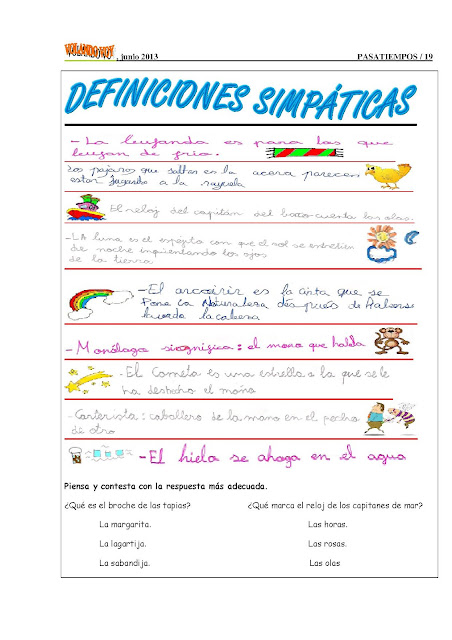 , junio 2013 PASATIEMPOS / 19
DEFINICIONES SIMPÁTICAS
- La bufanda es para los que
bufan de frío.
Los pájaros que saltan en la acera parecen
estar jugando a la rayuela
El reloj del capitán del barco cuenta las olas.
-LA luna es el espejito con que el sol se entretiene
de noche inquientando los ojos
de la tierra
-El arcoiris es la cinta que se
Pone la Naturaleza después de Haberse
lavado la cabeza
-Monólogo significa: el mono que habla
-El Cometa es una estrella a la que se le
ha deshecho el moño
-Carterista: caballero de la mano en el pecho
de otro
-El hielo se ahoga en el agua
Piensa y contesta con la respuesta más adecuada.
¿Qué es el broche de las tapias? ¿Qué marca el reloj de los capitanes de mar?
La margarita. Las horas.
La lagartija. Las rosas.
La sabandija. Las olas